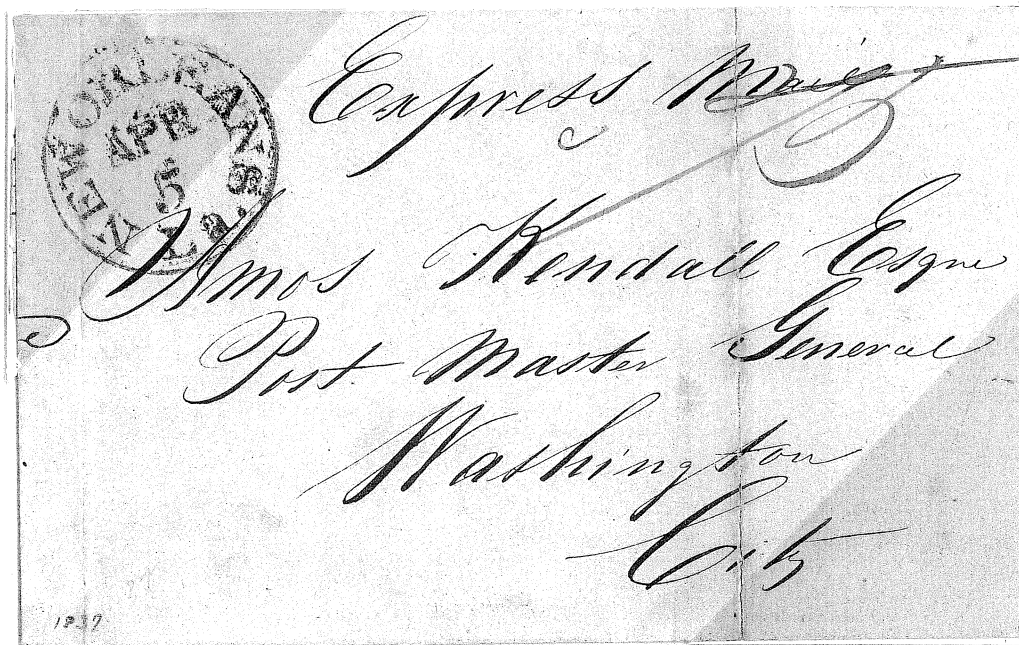 NEW ORLEANS La.
APR
5
Express Mail
Amos Kendall Esqre
Post Master General
Washington
City
1837